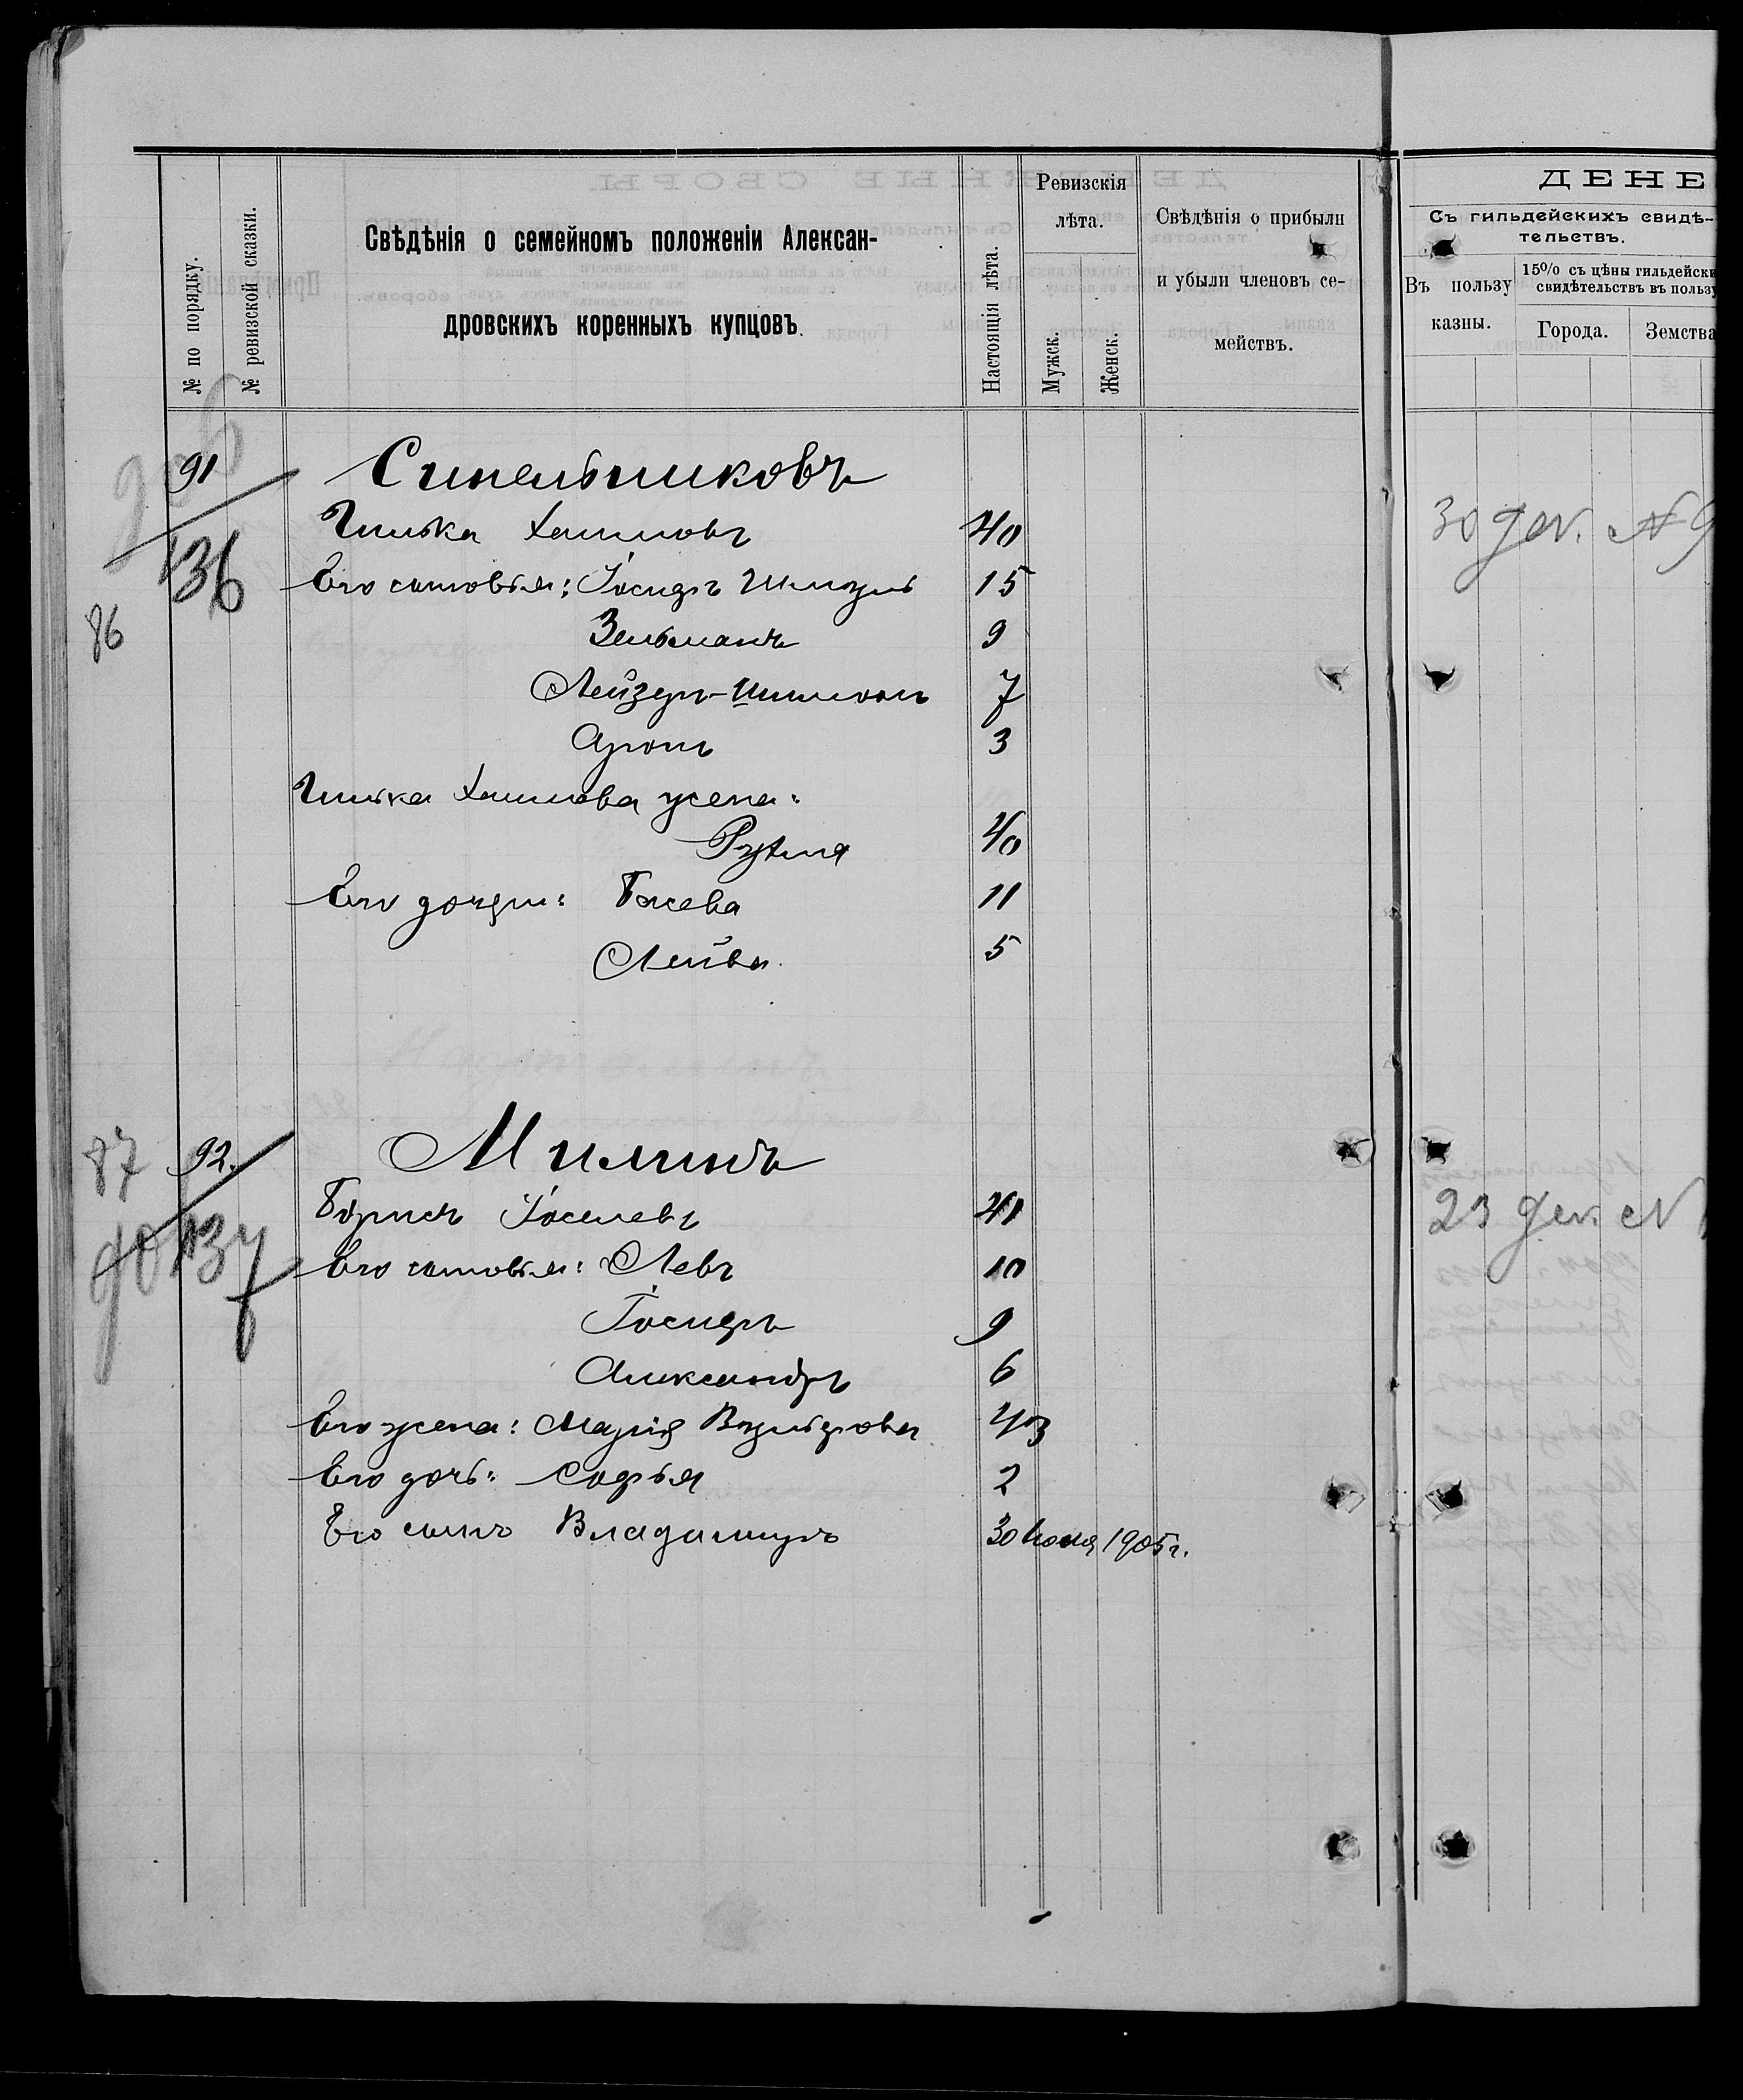 № по порядку.
№ ревизской сказки.
Свѣдѣнія о семейномъ положеніи Алексан-
дровскихъ коренныхъ купцовъ.
Настоящія лѣта.
Ревизскія
лѣта.
Мужск.
Женск.
Свѣдѣнія о прибыли
и убыли членовъ се-
мействъ.
91 Синельниковъ
136
86
Гилька Хаимовъ 40
Его сыновья: Іосифъ Шмуль 15
Зельманъ 9
Лейзеръ-Шимонъ 7
Аронъ 3
Гилька Хаимова жена:
Рухля 40
Его дочери: Басева 11
Лейва 5
87 92. Милинъ
137
Борисъ Іоселевъ 41
Его сыновья: Левъ 10
Іосифъ 9
Александръ 6
Его жена: Марія Вульфова 43
Его дочь: Софья 2
Его сынъ Владиміръ 30 Іюня 1905 г.
ДЕНЕ
Съ гильдейскихъ свидѣ-
тельствъ.
Въ пользу
казны.
15% съ цѣны гильдейски
свидѣтельствъ въ пользу
Города.
Земства
30 дек. № 9
23 Дек. №